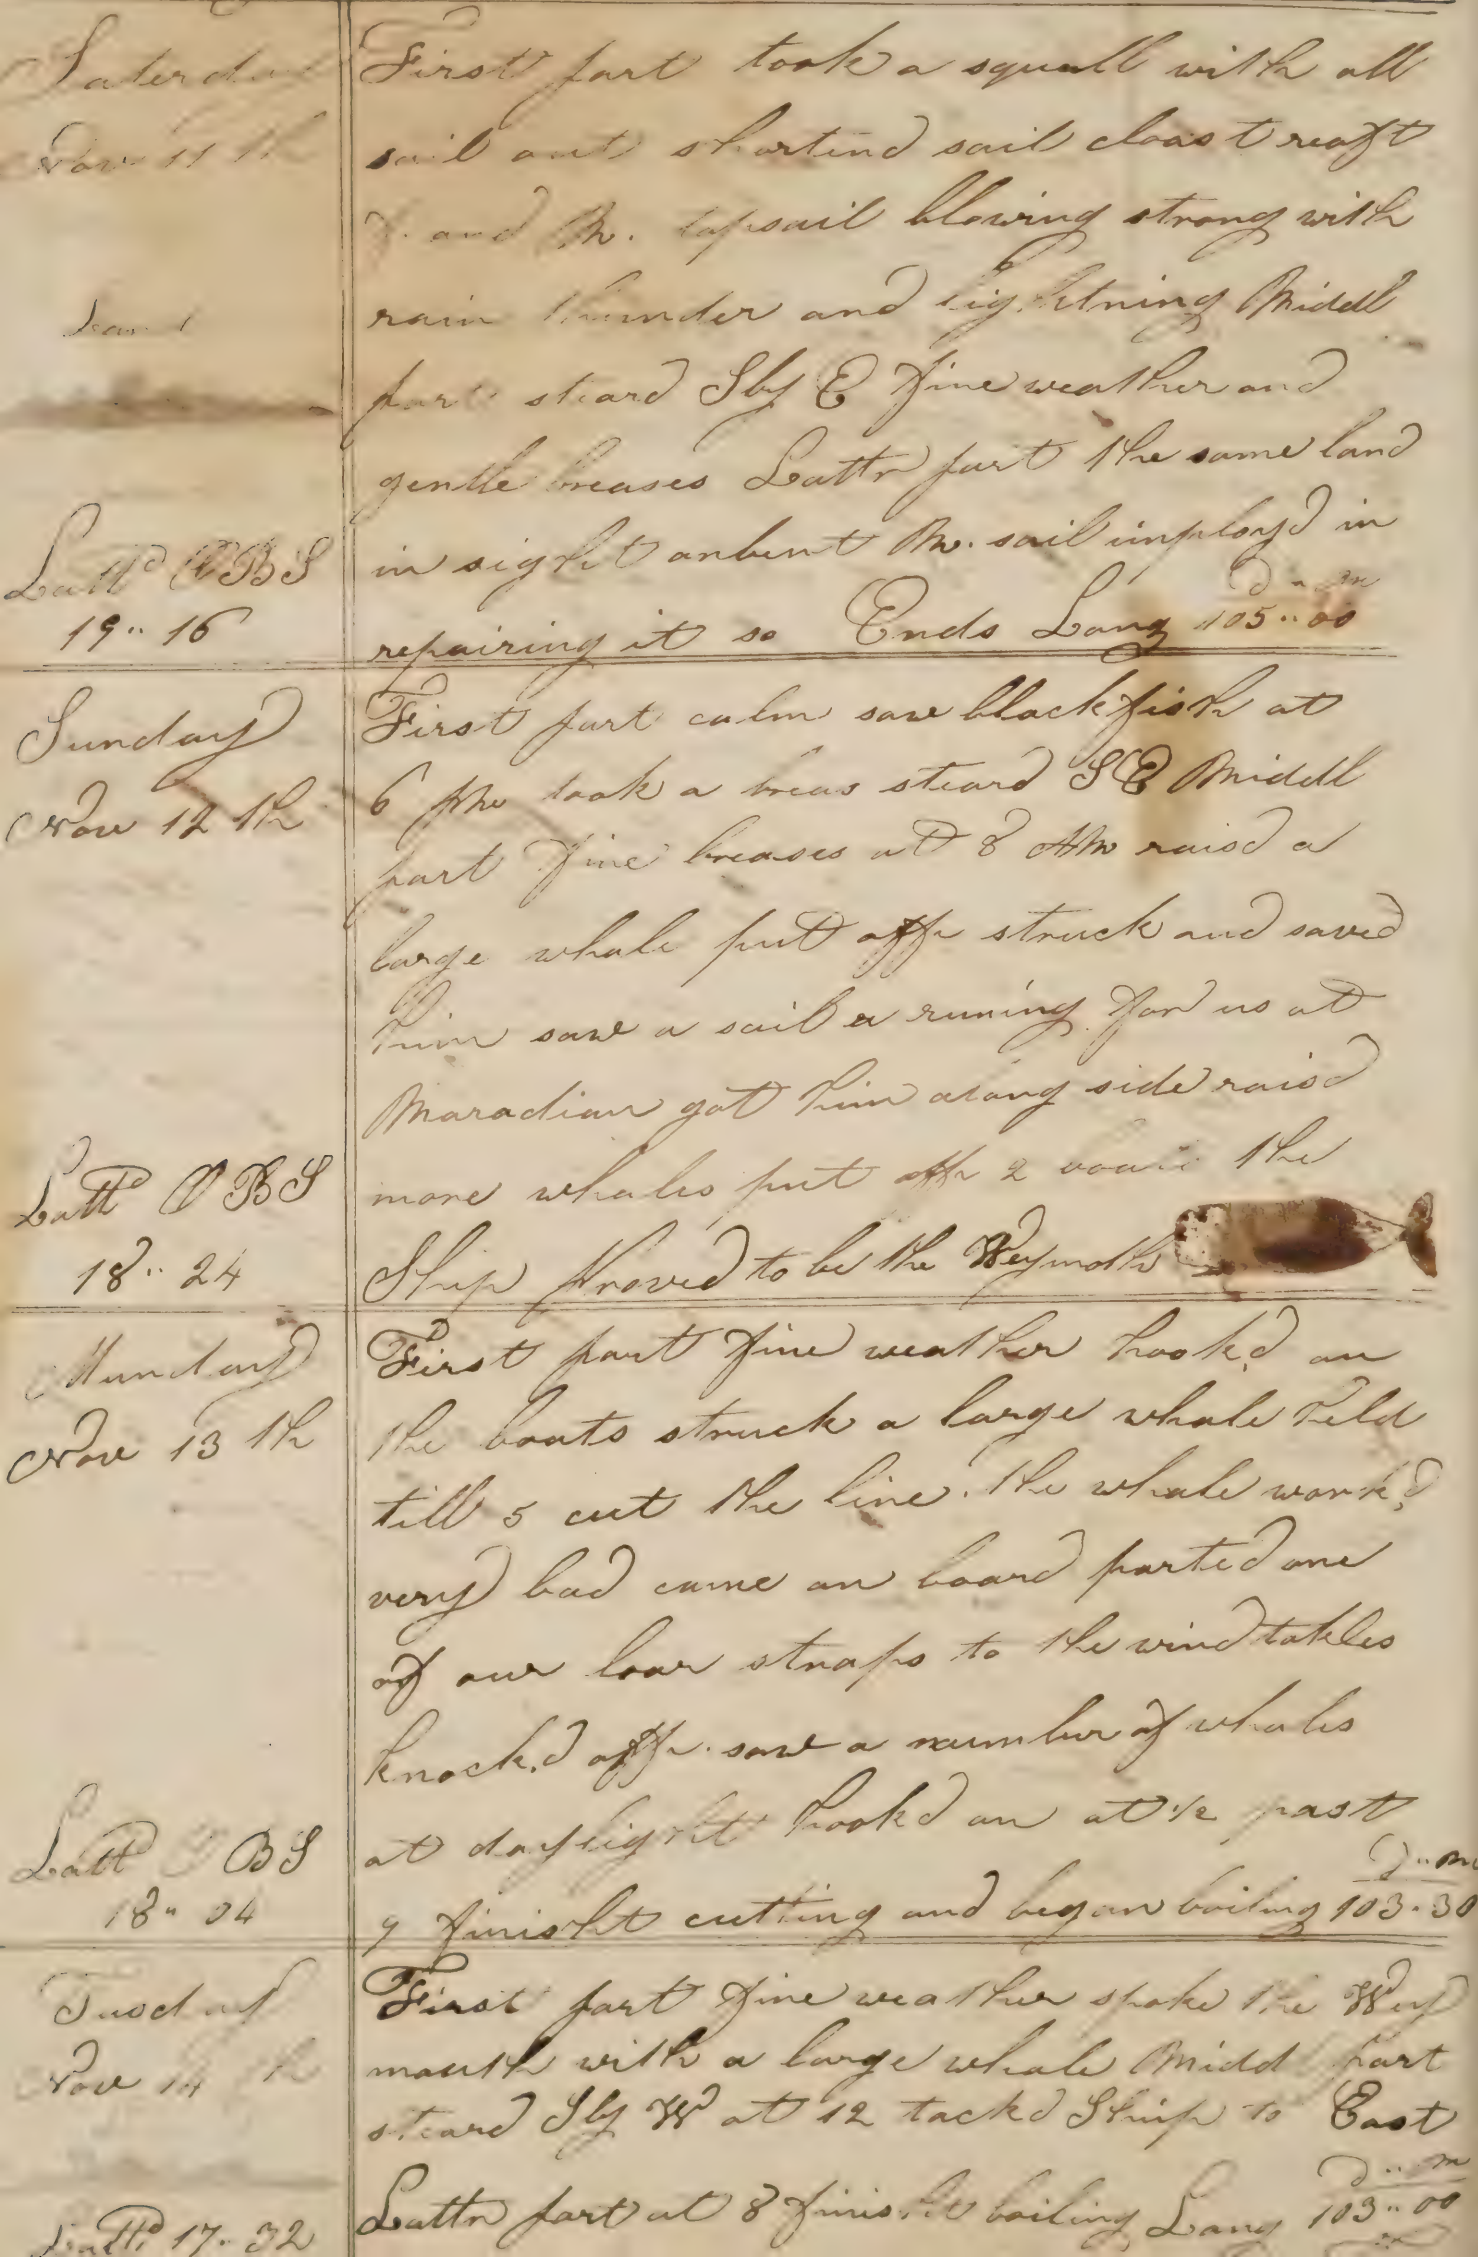 Saterday
Nov 11 th
Land
Lattd OBS
19" 16
First part took a squall with all
sail out shortend sail cloast reaft
F. and M. topsail blowing strong with
rain thunder and lightning Middl
part steard S by E fine weather and
gentle breases Lattr part the same land
in sight onbent M. sail imployd in
repairing it so Ends Long 105"00
D " m
Sunday
Nov 12 th
Lattd OBS
18" 24
First part calm saw blackfish at
6 PM took a breas steard SE Middl
part fine breases at 8 AM raisd a
large whale put off struck and saved
him saw a sail a runing for us at
Maradian got him along side raisd
more whales put off 2 boats the
Ship proved to be the Weymoth
Munday
Nov 13 th
Lattd OBS
18" 04
First part fine weather hook.d on
the boats struck a large whale held
till 5 cut the line. the whale work.d
very bad came on board parted one
of our loar straps to the wind takles
knock.d off. saw a number of whales
at daylight hookd on at 1/2 past
9 finisht cutting and began boiling 103"30
D " m
Tusday
Nov 14 th
Lattd 17" 32
First part fine weather spoke the Wey
mouth with a large whale Midd part
steard S by W at 12 tackd Ship to East
Lattr part at 8 finisht boiling Long 103"00
D " m